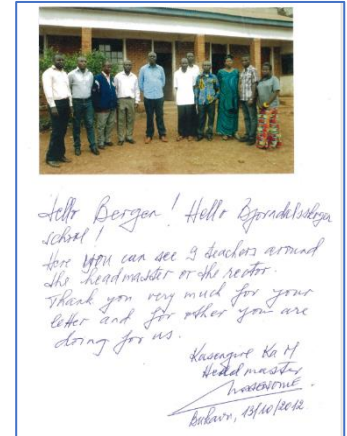 Hello Bergen! Hello Bjorndalsskogen
school!
Here you can see 9 teachers around
the headmaster or the rector.
Thank you very much for your
letter and for other you are
doing for us.
Headmaster
13/10/2012